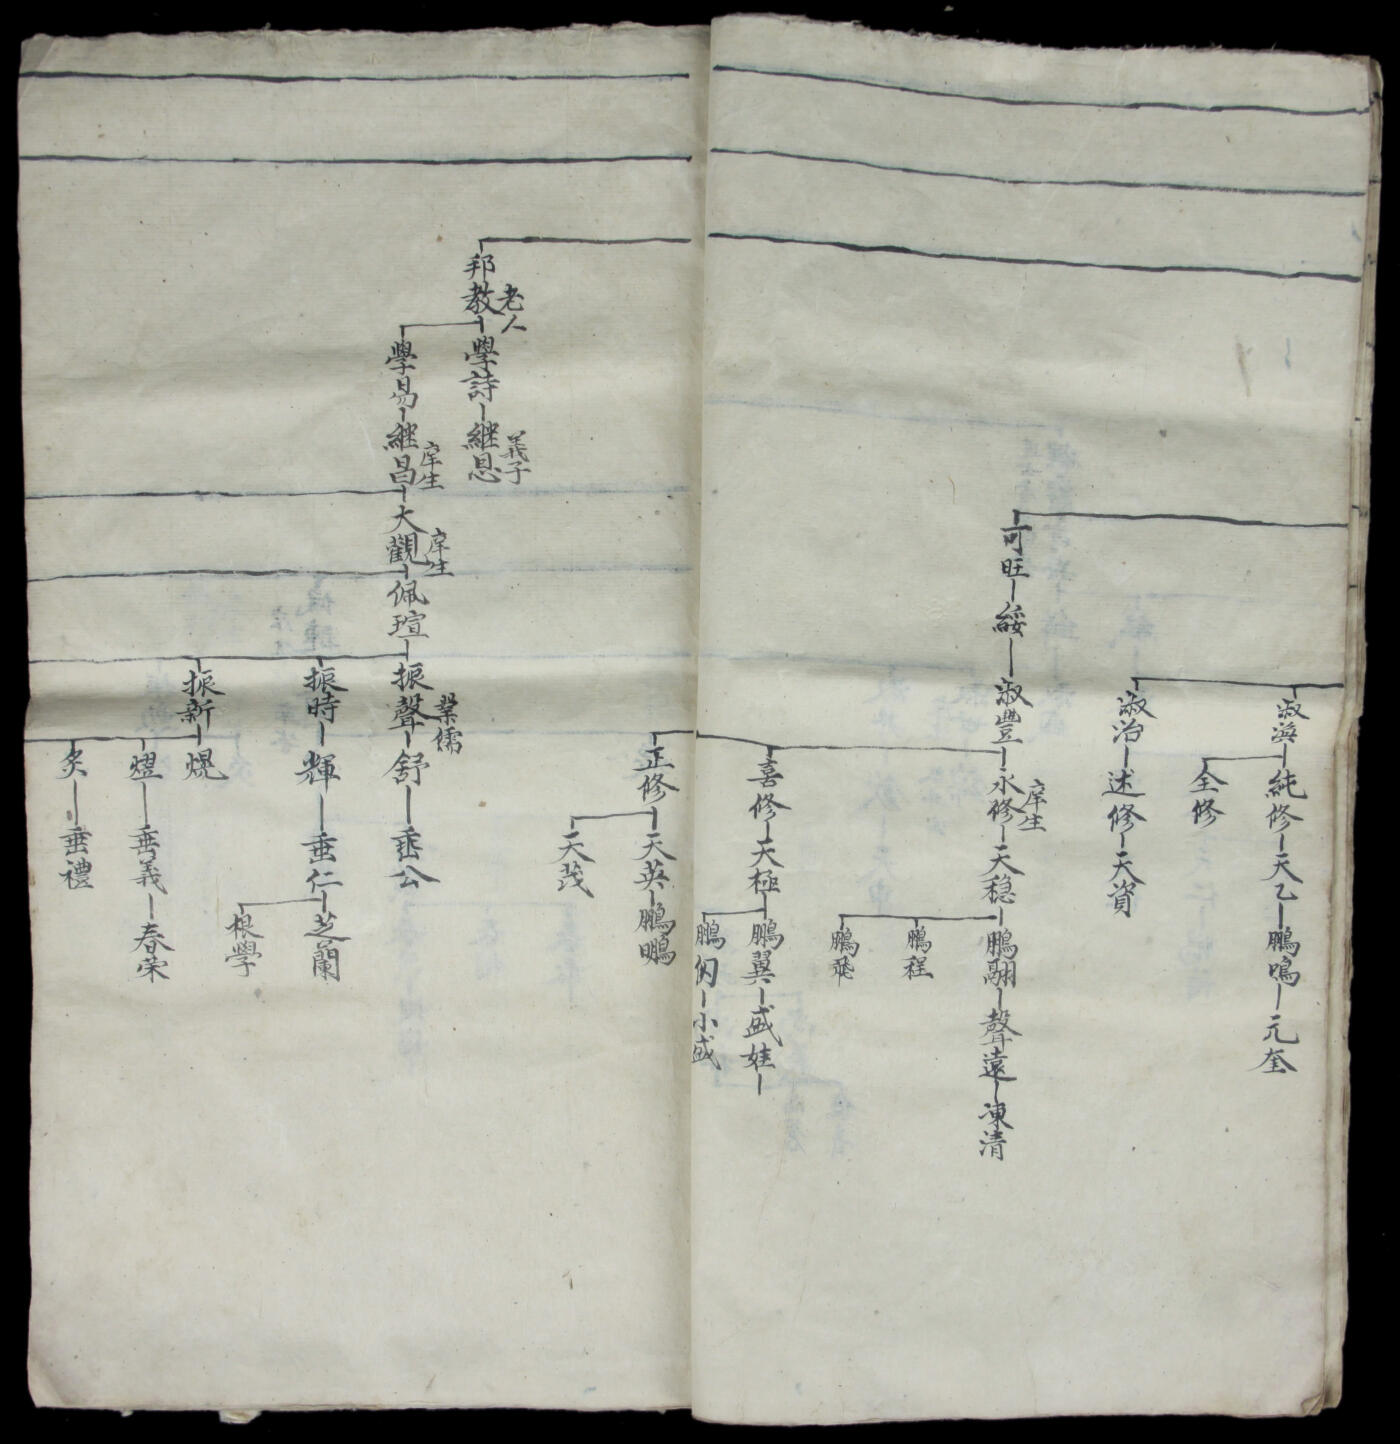 淑濱 純修 天乙 鵬鳴 元奎
全修
淑治 述修 天資
可旺 綏 淑豐 永修 庠生 天稳 鵬翮 聲遠 凍清
鵬程
鵬飛
喜修 天極 鵬翼 盛娃
鵬閃 小盛
正修 天英 鵬鵬
天茂
邦教 老人 學詩 継恩 義子
學易 継昌 庠生 大觀 庠生 佩瑄 振聲 業儒 舒 垂公
振時 輝 垂仁 芝蘭
根學
振新 焜
熠 垂義 春荣
炙 垂禮